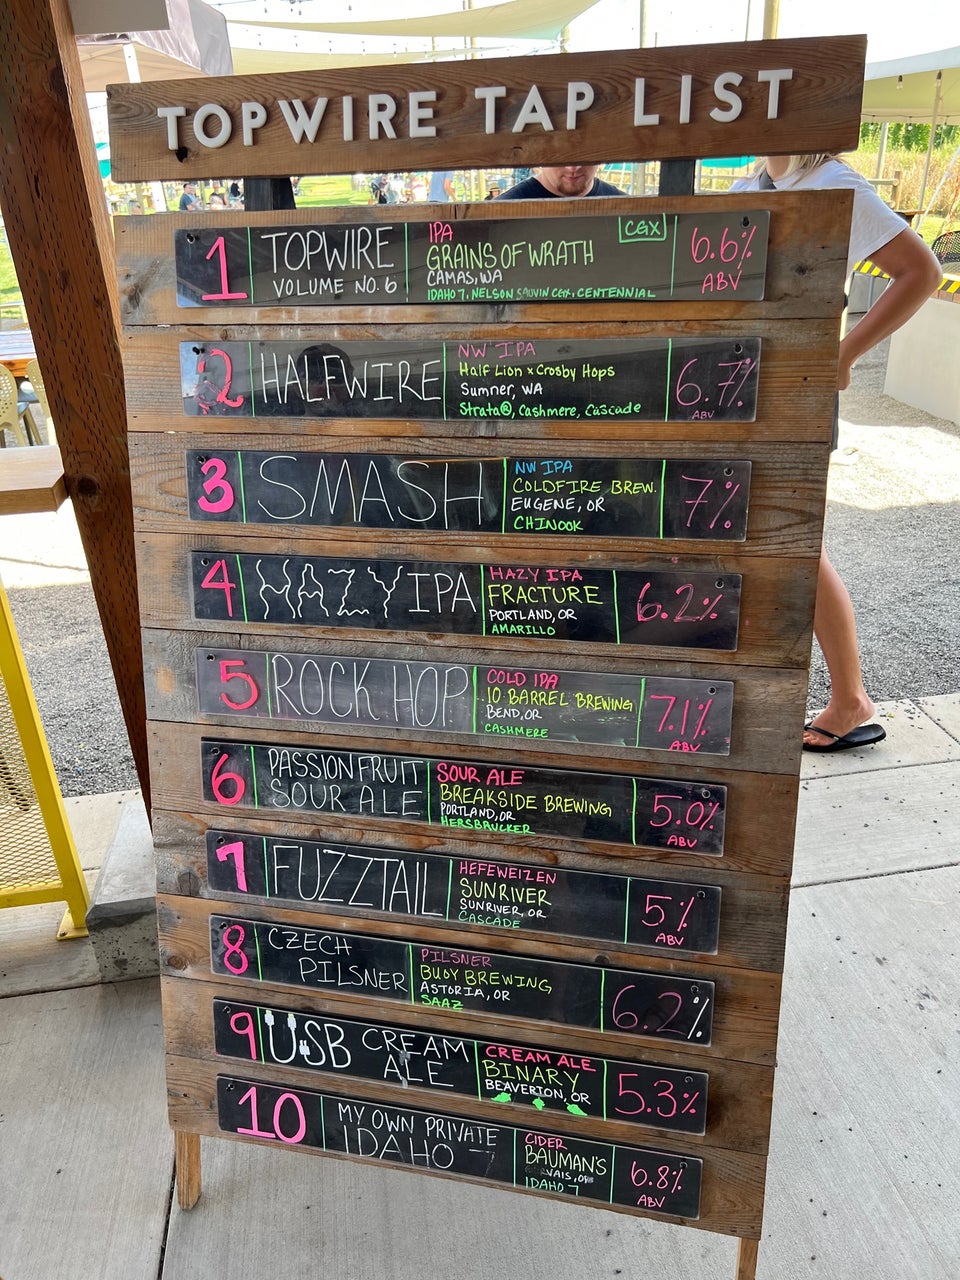 TOPWIRE TAP LIST
1
TOPWIRE
VOLUME NO. 6
IPA
CGX
GRAINS OF WRATH
CAMAS, WA
IDAHO 7, NELSON SAUVIN CGX, CENTENNIAL
6.6%
ABV
2
HALFWIRE
NW IPA
Half Lion x Crosby Hops
Sumner, WA
Strata®, Cashmere, Cascade
6.7%
ABV
3
SMASH
NW IPA
COLDFIRE BREW.
EUGENE, OR
CHINOOK
7%
4
HAZY IPA
HAZY IPA
FRACTURE
PORTLAND, OR
AMARILLO
6.2%
5
ROCK HOP
COLD IPA
10 BARREL BREWING
BEND, OR
CASHMERE
7.1%
ABV
6
PASSIONFRUIT
SOUR ALE
SOUR ALE
BREAKSIDE BREWING
PORTLAND, OR
HERSBRUCKER
5.0%
ABV
7
FUZZTAIL
HEFEWEIZEN
SUNRIVER
SUNRIVER, OR
CASCADE
5%
ABV
8
CZECH
PILSNER
PILSNER
BUOY BREWING
ASTORIA, OR
SAAZ
6.2%
9
USB CREAM
ALE
CREAM ALE
BINARY
BEAVERTON, OR
5.3%
10
MY OWN PRIVATE
IDAHO 7
CIDER
BAUMAN'S
IDAHO 7
6.8%
ABV